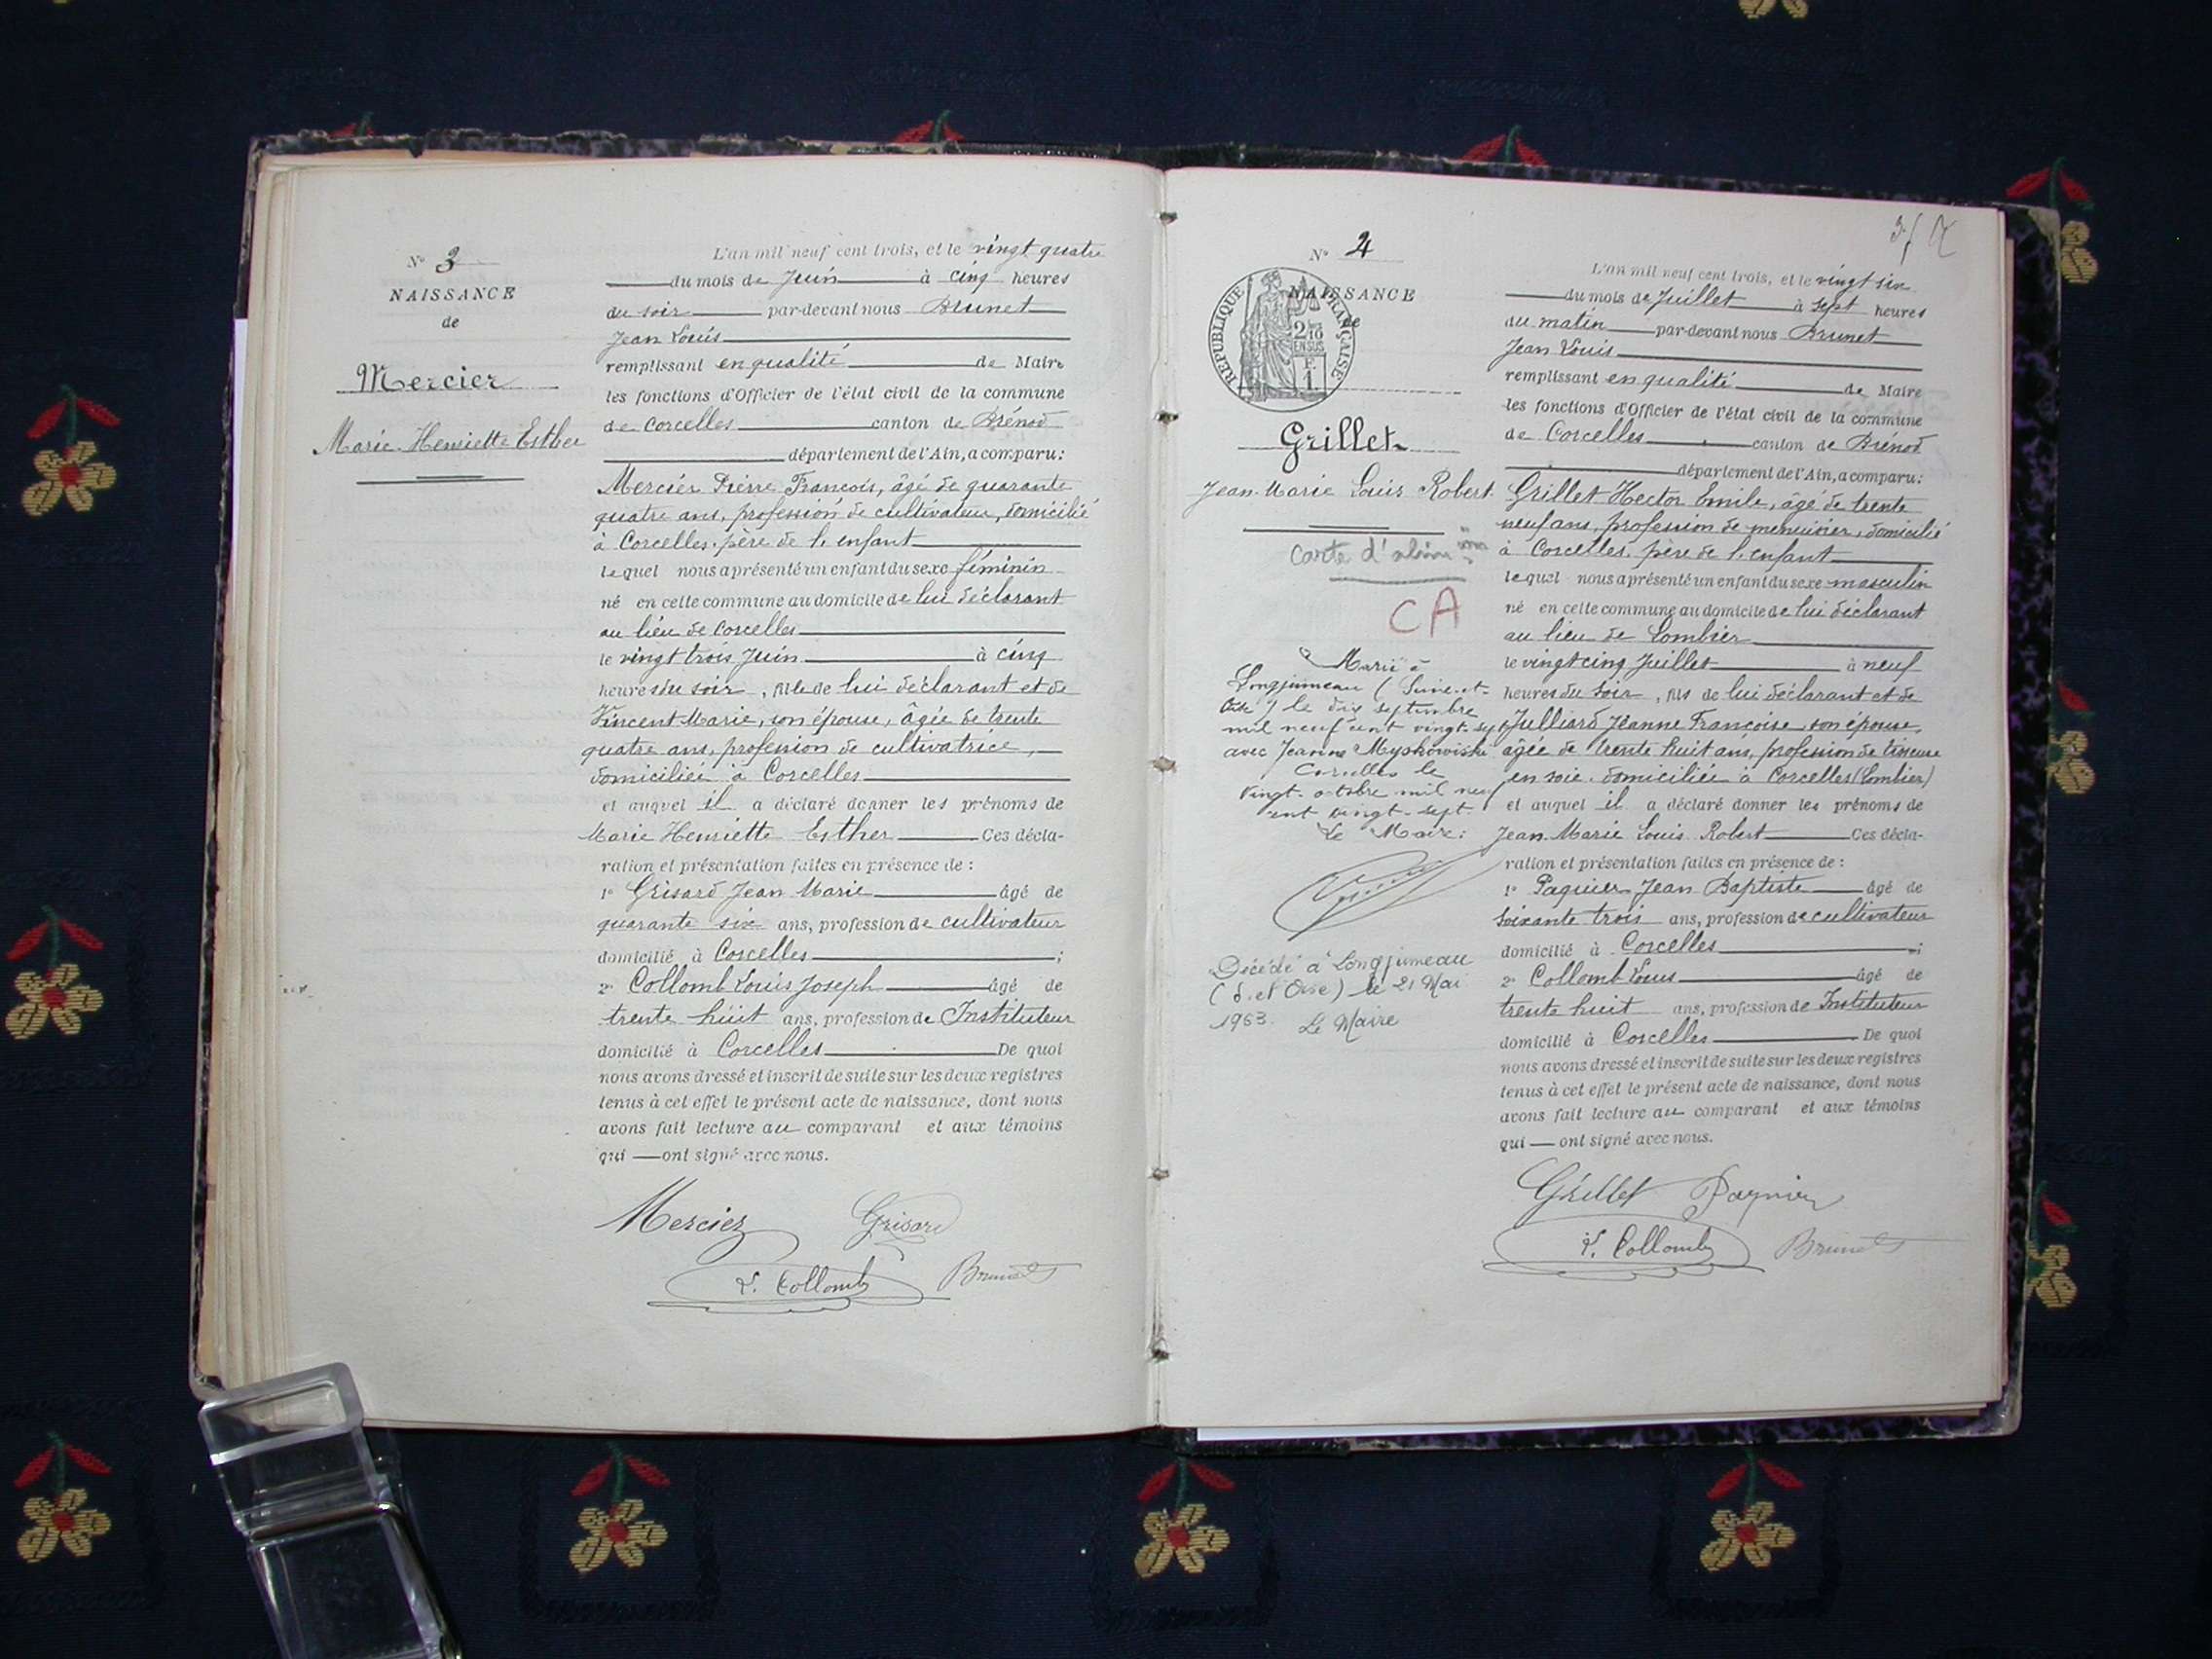 N° 3
NAISSANCE
de
Mercier
Marie Henriette Esther
L'an mil neuf cent trois, et le vingt quatre
du mois de Juin à cinq heures
du soir par-devant nous Brunet
Jean Louis
remplissant en qualité de Maire
les fonctions d'Officier de l'état civil de la commune
de Corcelles canton de Brénod
département de l'Ain, a comparu:
Mercier Pierre François, âgé de quarante
quatre ans, profession de cultivateur, domicilié
à Corcelles. père de l'enfant
lequel nous a présenté un enfant du sexe féminin
né en cette commune au domicile de lui déclarant
au lieu de Corcelles
le vingt trois Juin à cinq
heures du soir, fille de lui déclarant et de
Vincent Marie, son épouse, âgée de trente
quatre ans, profession de cultivatrice,
domiciliée à Corcelles
et auquel il a déclaré donner les prénoms de
Marie Henriette Esther Ces décla-
ration et présentation faites en présence de :
1° Grisard Jean Marie âgé de
quarante six ans, profession de cultivateur
domicilié à Corcelles ;
2° Collomb Louis Joseph âgé de
trente huit ans, profession de Instituteur
domicilié à Corcelles De quoi
nous avons dressé et inscrit de suite sur les deux registres
tenus à cet effet le présent acte de naissance, dont nous
avons fait lecture au comparant et aux témoins
qui — ont signé avec nous.
Mercier Grisard
L. Collomb Brunet
N° 4
NAISSANCE
de
RÉPUBLIQUE FRANÇAISE
2/10
EN SUS
F.
1
Grillet
Jean Marie Louis Robert
carte d'alim
CA
Marié à
Longjumeau (Seine-et-
Oise) le dix septembre
mil neuf cent vingt-sept
avec Jeanne Myskowiski
Corcelles le
vingt octobre mil neuf
cent vingt-sept
Le Maire:
Décédé à Longjumeau
(S. et Oise) le 21 Mai
1963. Le Maire
L'an mil neuf cent trois, et le vingt six
du mois de Juillet à sept heures
du matin par-devant nous Brunet
Jean Louis
remplissant en qualité de Maire
les fonctions d'Officier de l'état civil de la commune
de Corcelles canton de Brénod
département de l'Ain, a comparu:
Grillet Hector Emile, âgé de trente
neuf ans, profession de menuisier, domicilié
à Corcelles. père de l'enfant
lequel nous a présenté un enfant du sexe masculin
né en cette commune au domicile de lui déclarant
au lieu de Lombier
le vingt cinq Juillet à neuf
heures du soir, fils de lui déclarant et de
Julliard Jeanne Françoise son épouse,
âgée de trente huit ans, profession de tisseuse
en soie. domiciliée à Corcelles (Lombier)
et auquel il a déclaré donner les prénoms de
Jean Marie Louis Robert Ces décla-
ration et présentation faites en présence de :
1° Paquier Jean Baptiste âgé de
soixante trois ans, profession de cultivateur
domicilié à Corcelles ;
2° Collomb Louis âgé de
trente huit ans, profession de Instituteur
domicilié à Corcelles De quoi
nous avons dressé et inscrit de suite sur les deux registres
tenus à cet effet le présent acte de naissance, dont nous
avons fait lecture au comparant et aux témoins
qui — ont signé avec nous.
Grillet Paquier
L. Collomb Brunet